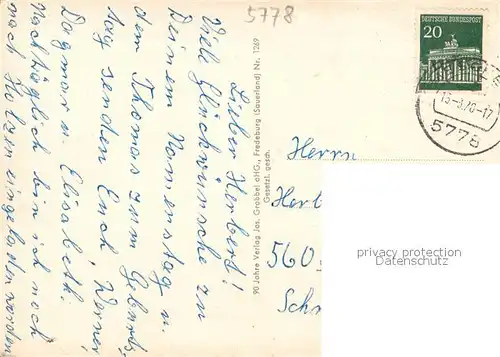 5778
Lieber Herbert!
Viele Glückwünsche zu
Deinem Namenstag u.
dem Thomas zum Geburts-
tag senden Euch Werner
Dagmar u. Elisabeth.
Nachträglich bin ich noch
nach Holzen eingeladen worden
90 Jahre Verlag Jos. Grobbel oHG., Fredeburg (Sauerland) Nr. 1269
Gesetzl. gesch.
DEUTSCHE BUNDESPOST
20
5778
Herrn
Herb
560
Sch
privacy protection
Datenschutz